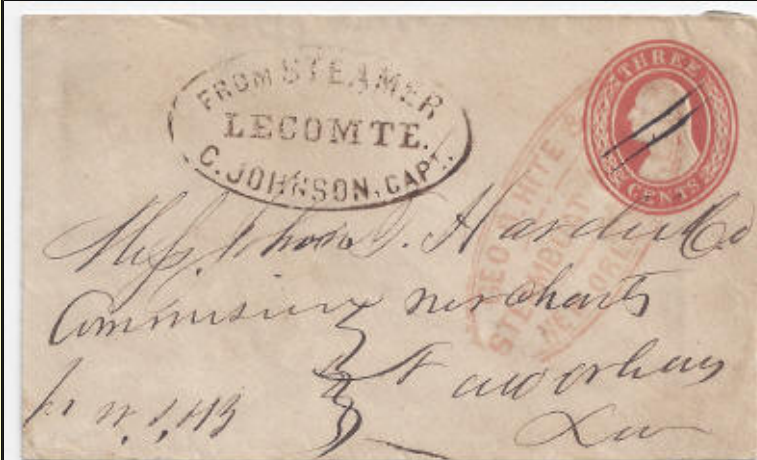 FROM STEAMER
LECOMTE.
C. JOHNSON, CAPT.
THREE
CENTS
GEO. D. HITE
STEAMBOAT
NEW ORL
Mess Thos. D. Hardin & Co
Commission merchants
New Orleans
Lou